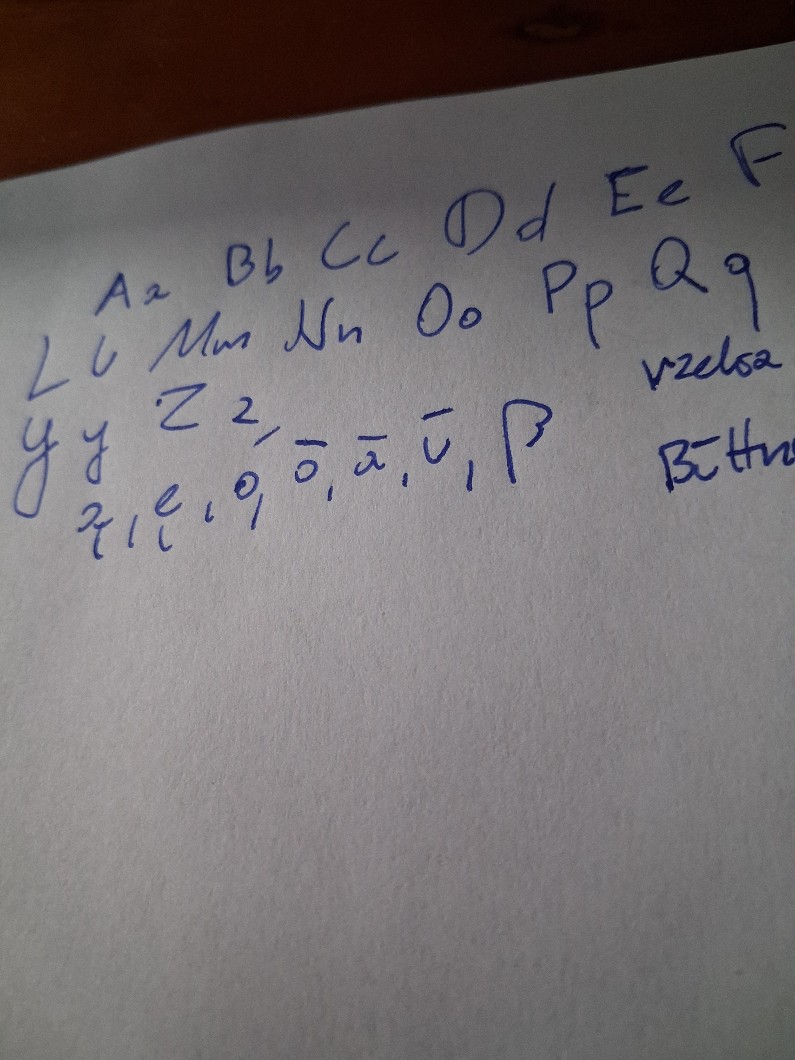 Aa Bb Cc Dd Ee F
Ll Mm Nn Oo Pp Qq
Yy Zz
ą, ę, ó, ō, ā, ū, β